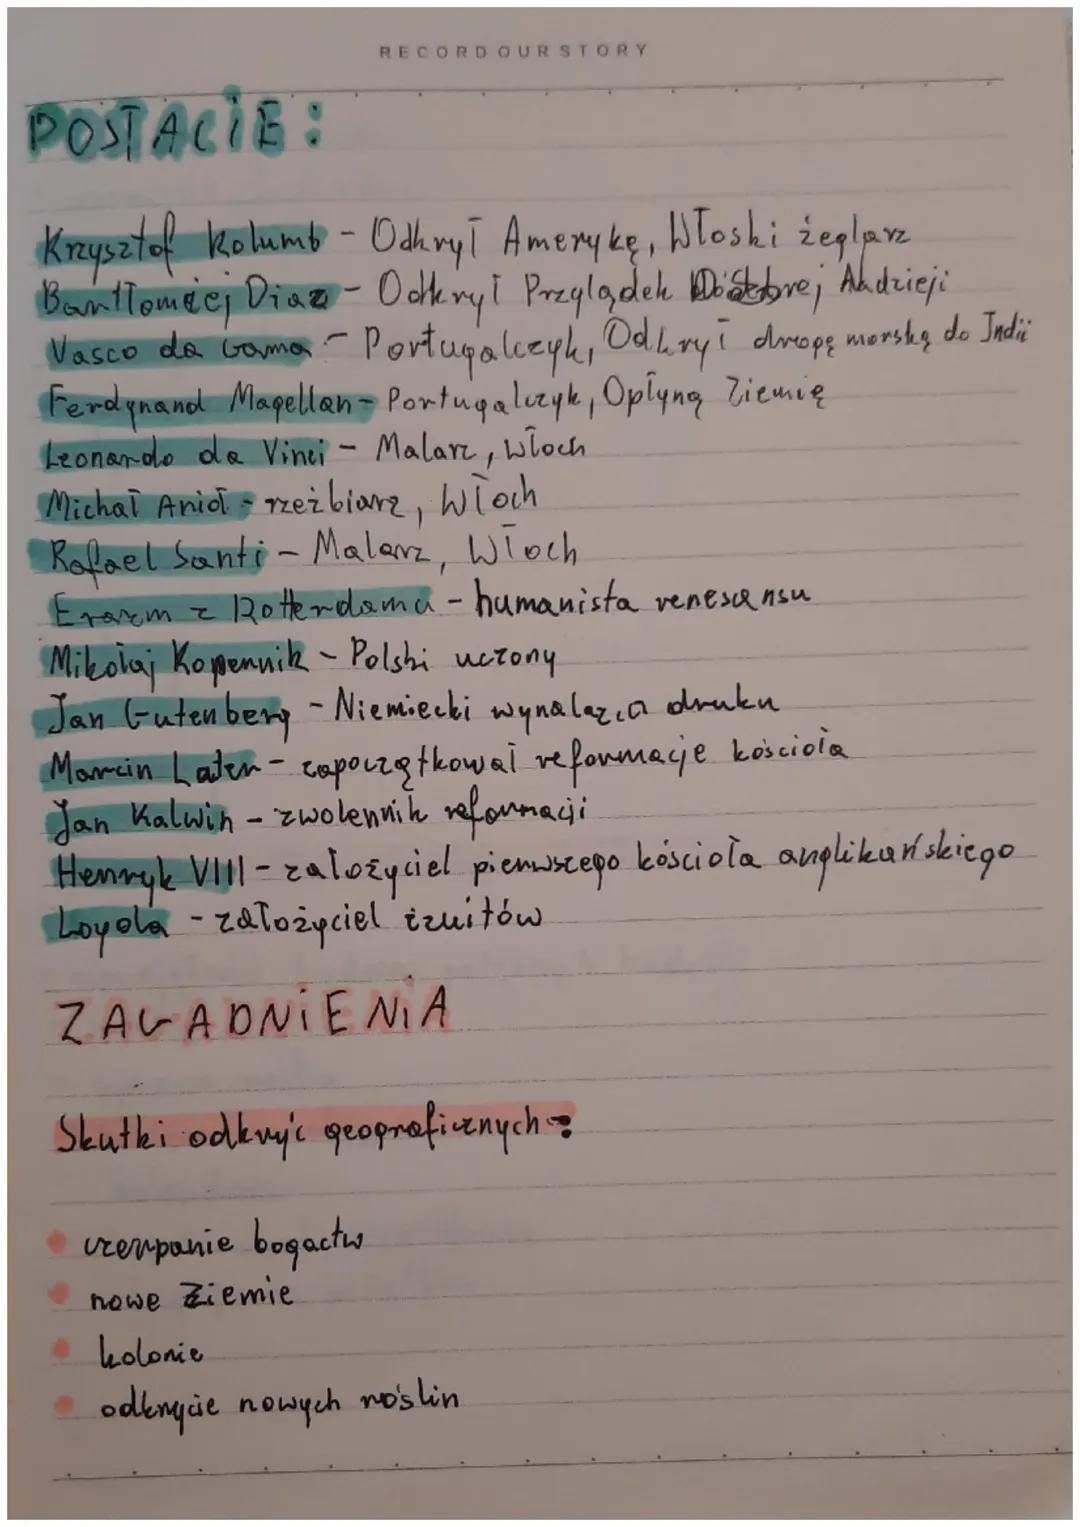 RECORD OUR STORY
POSTACIE:
Krzysztof Kolumb - Odkrył Amerykę, Włoski żeglarz
Barttomiej Diaz - Odkrył Przylądek Dobrej Nadzieji
Vasco da Gama - Portugalczyk, Odkrył drogę morską do Indii
Ferdynand Magellan - Portugalczyk, Opłyną Ziemię
Leonardo da Vinci - Malarz, Włoch
Michał Anioł - rzeźbiarz, Włoch
Rafael Santi - Malarz, Włoch
Erazm z Rotterdamu - humanista renesansu
Mikołaj Kopernik - Polski uczony
Jan Gutenberg - Niemiecki wynalazca druku
Marcin Luter - zapoczątkował reformacje kościoła
Jan Kalwin - zwolennik reformacji
Henryk VIII - założyciel pierwszego kościoła anglikańskiego
Loyola - założyciel izuitów
ZAGADNIENIA
Skutki odkryć geograficznych:
czerpanie bogactw
nowe Ziemie
kolonie
odkrycie nowych roślin